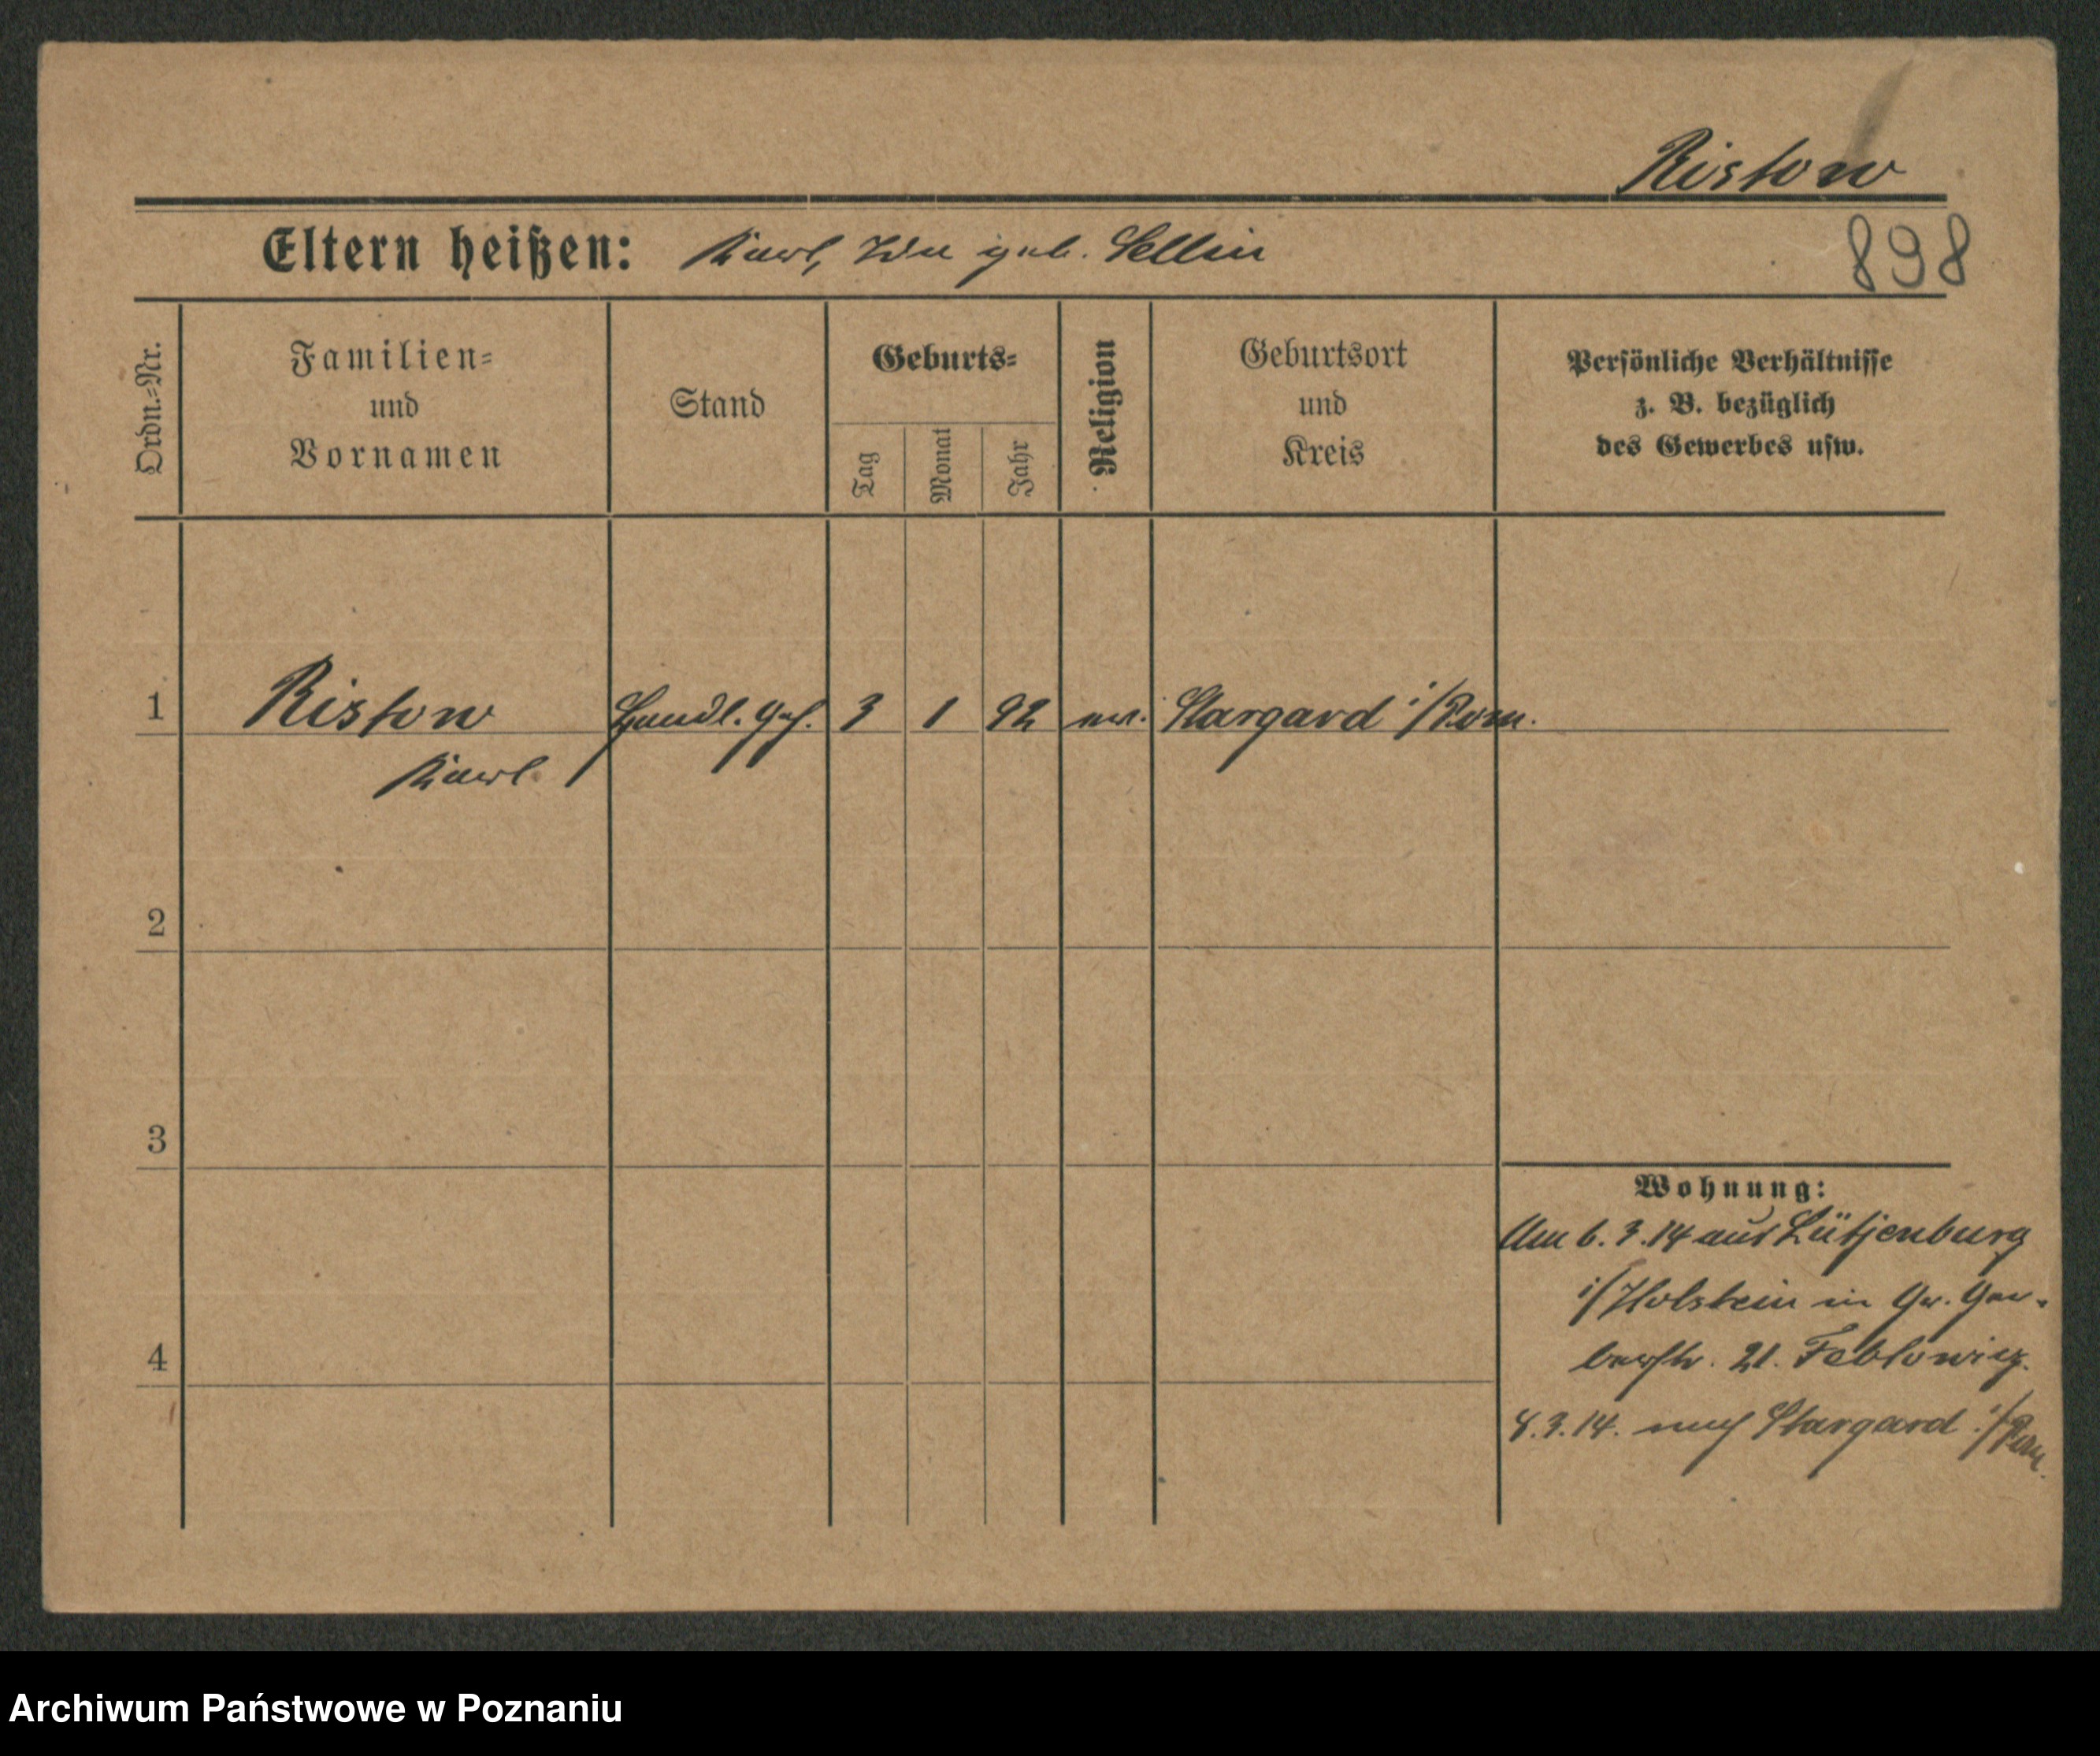 Ristow
Eltern heißen: Karl, Ida geb. Sellin
898
Ordn.-Nr.
Familien-
und
Vornamen
Stand
Geburts-
Tag
Monat
Jahr
Religion
Geburtsort
und
Kreis
Persönliche Verhältnisse
z. B. bezüglich
des Gewerbes usw.
1 Ristow Handl. Geh. 3 1 92 ev. Stargard i/Pom.
Karl
2
3
4
Wohnung:
Am 6.3.14 aus Lütjenburg
i/Holstein in Gr. Ger-
berstr. 21.
8.3.14. nach Stargard i/Pom.
Archiwum Państwowe w Poznaniu